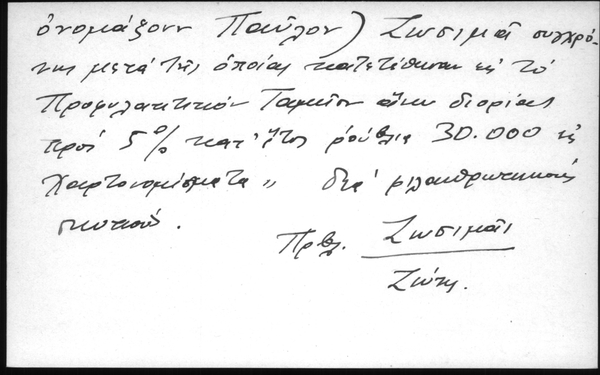 ὀνομάζουν Παῦλον) Ζωσιμᾶ συγχρό-
νως μετὰ τῆς ὁποίας κατετίθησαν εἰς τὸ
Προφυλακτικὸν Ταμεῖον ἄνευ διορίας
πρὸς 5% κατ' ἔτος ῥούβλια 30.000 εἰς
χαρτονομίσματα „ διὰ φιλανθρωπικοὺς
σκοπούς.
Πρβλ. Ζωσιμᾶι
Ζώτης.